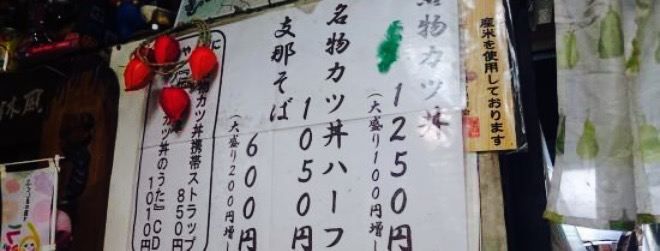 名物カツ丼
1250円
(大盛り100円増し
名物カツ丼ハーフ
1050円
支那そば
600円
(大盛り200円増し
物カツ丼携帯ストラップ
850円
カツ丼のうた』CD
1010円
産米を使用しております